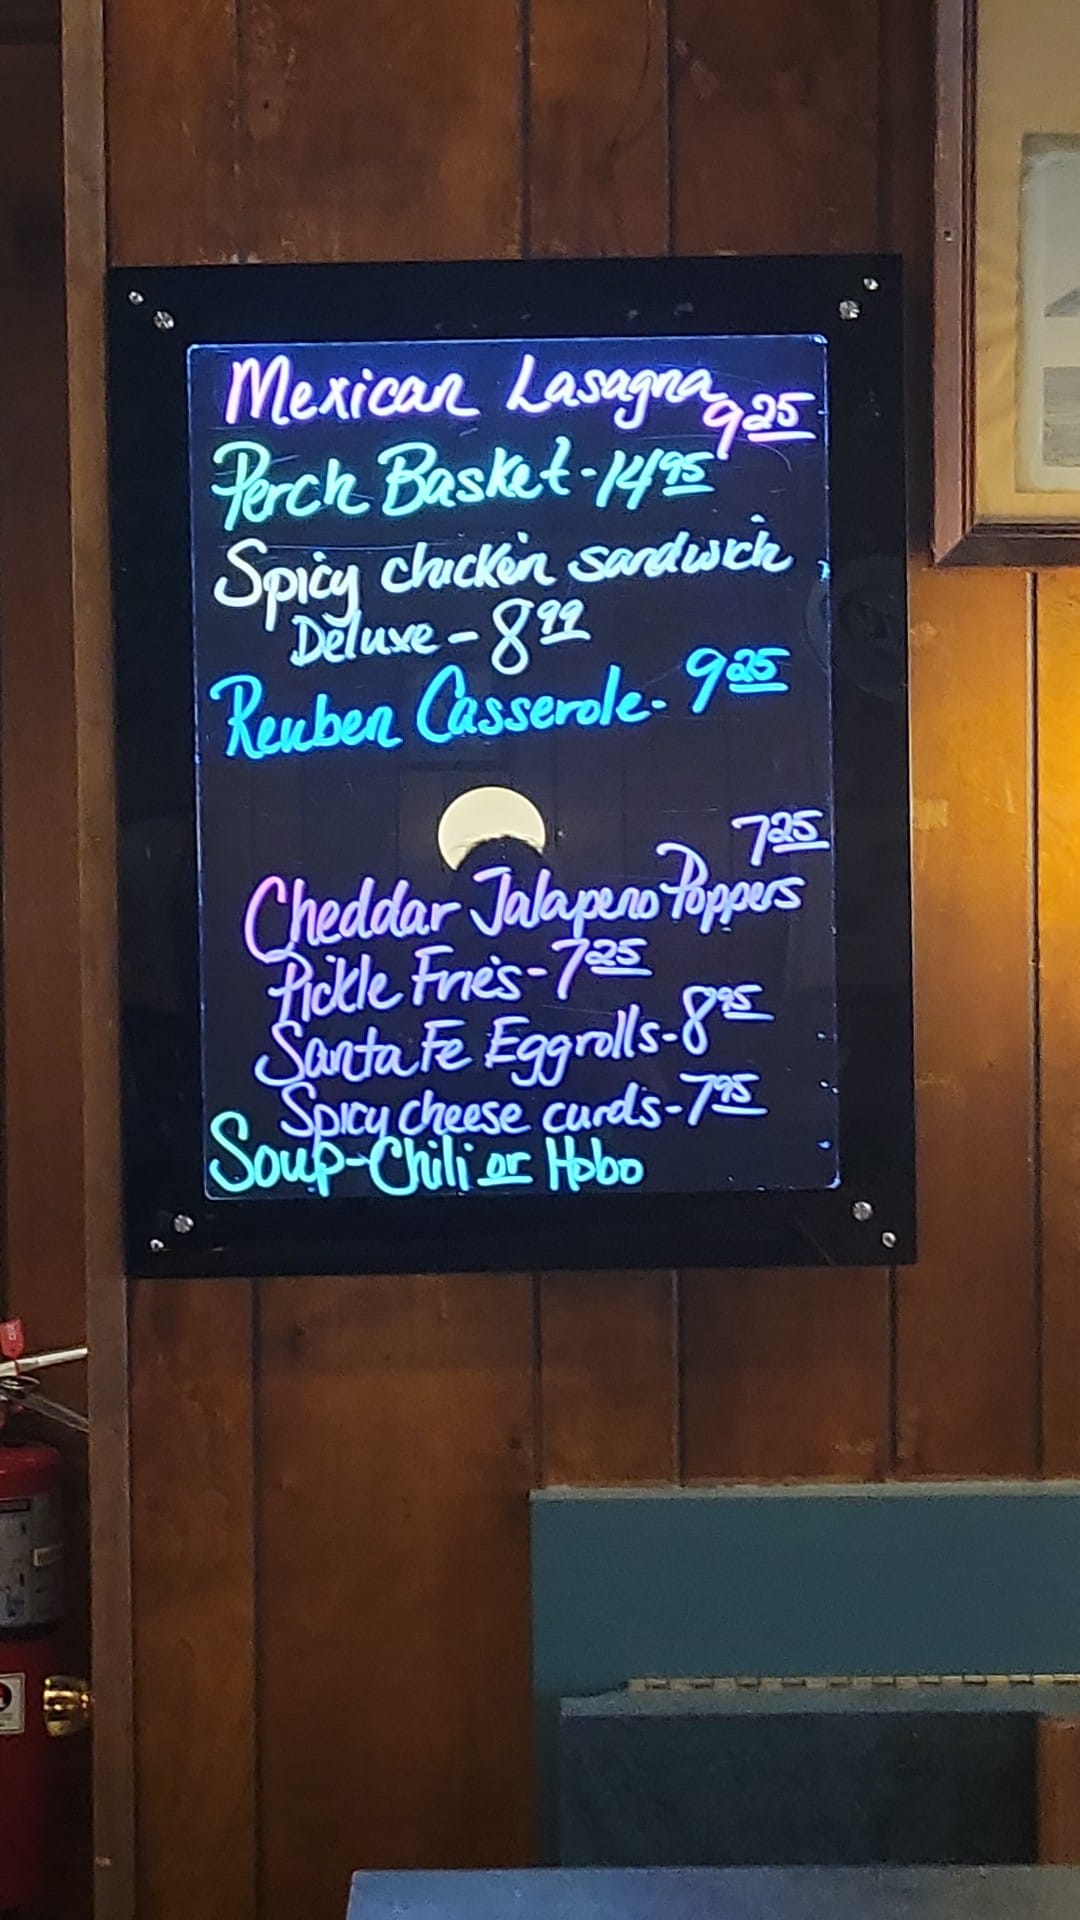 Mexican Lasagna 9.25
Perch Basket - 14.95
Spicy chicken sandwich
Deluxe - 8.99
Reuben Casserole - 9.25
7.25
Cheddar Jalapeno Poppers
Pickle Fries - 7.25
Santa Fe Eggrolls - 8.95
Spicy cheese curds - 7.95
Soup - Chili or Hobo